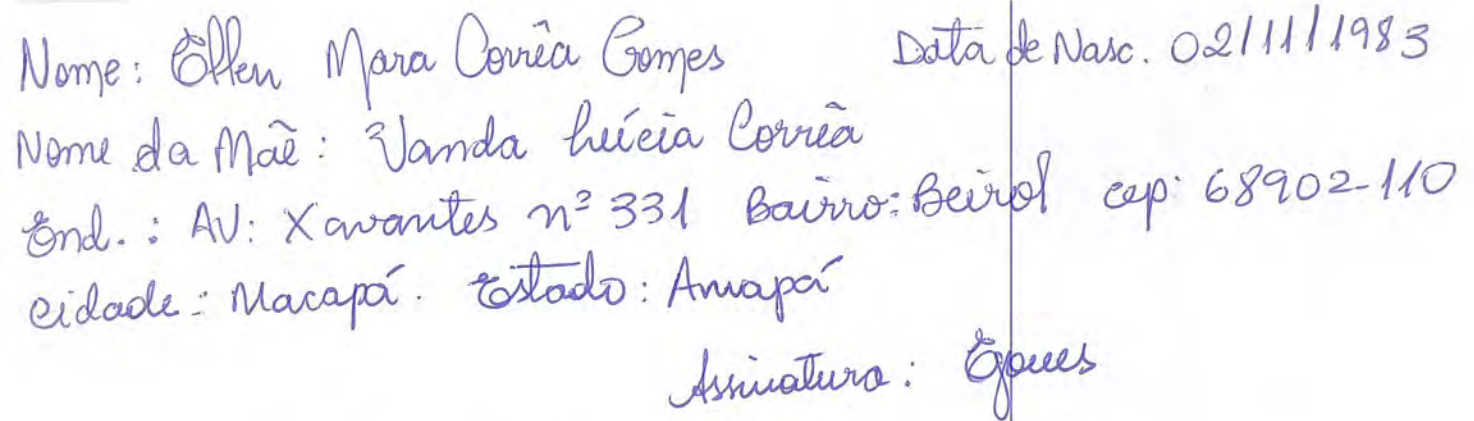 Nome: Ellen Mara Corrêa Gomes Data de Nasc. 02/11/1983
Nome da Mãe: Vanda Lúcia Corrêa
End.: AV: Xavantes nº 331 Bairro: Beirol cep: 68902-110
cidade: Macapá. Estado: Amapá
Assinatura: EGomes